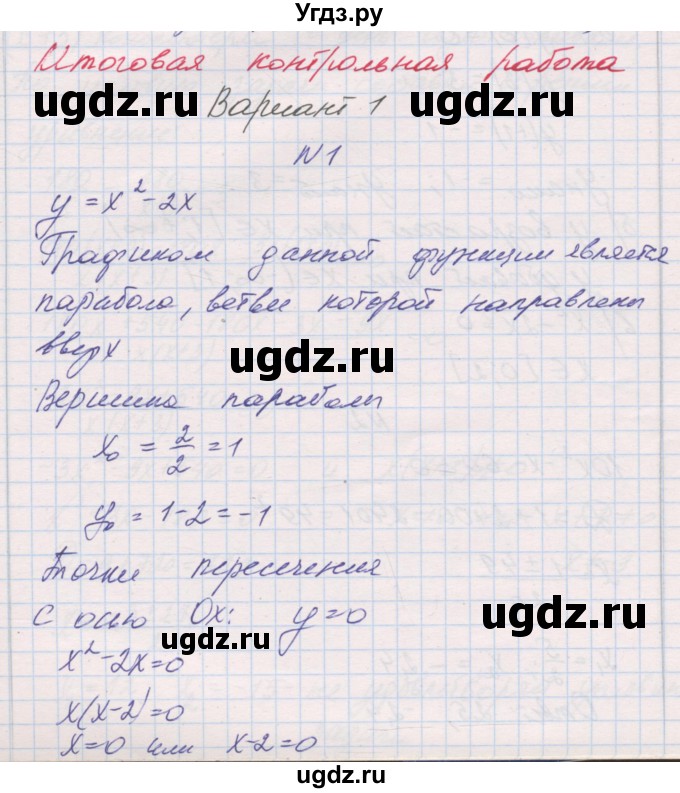 Угдз.ру
Итоговая контрольная работа
ugdz.ru Вариант 1 ugdz.ru
N1
y = x² - 2x
Графиком данной функции является
парабола, ветви которой направлены
вверх ugdz.ru
Вершина параболы
x₀ = 2/2 = 1
y₀ = 1-2 = -1
Точки пересечения
с осью Ox: y=0 ugdz.ru
x² - 2x = 0
x(x-2)=0
x=0 или x-2=0 ugdz.ru
ugdz.ru